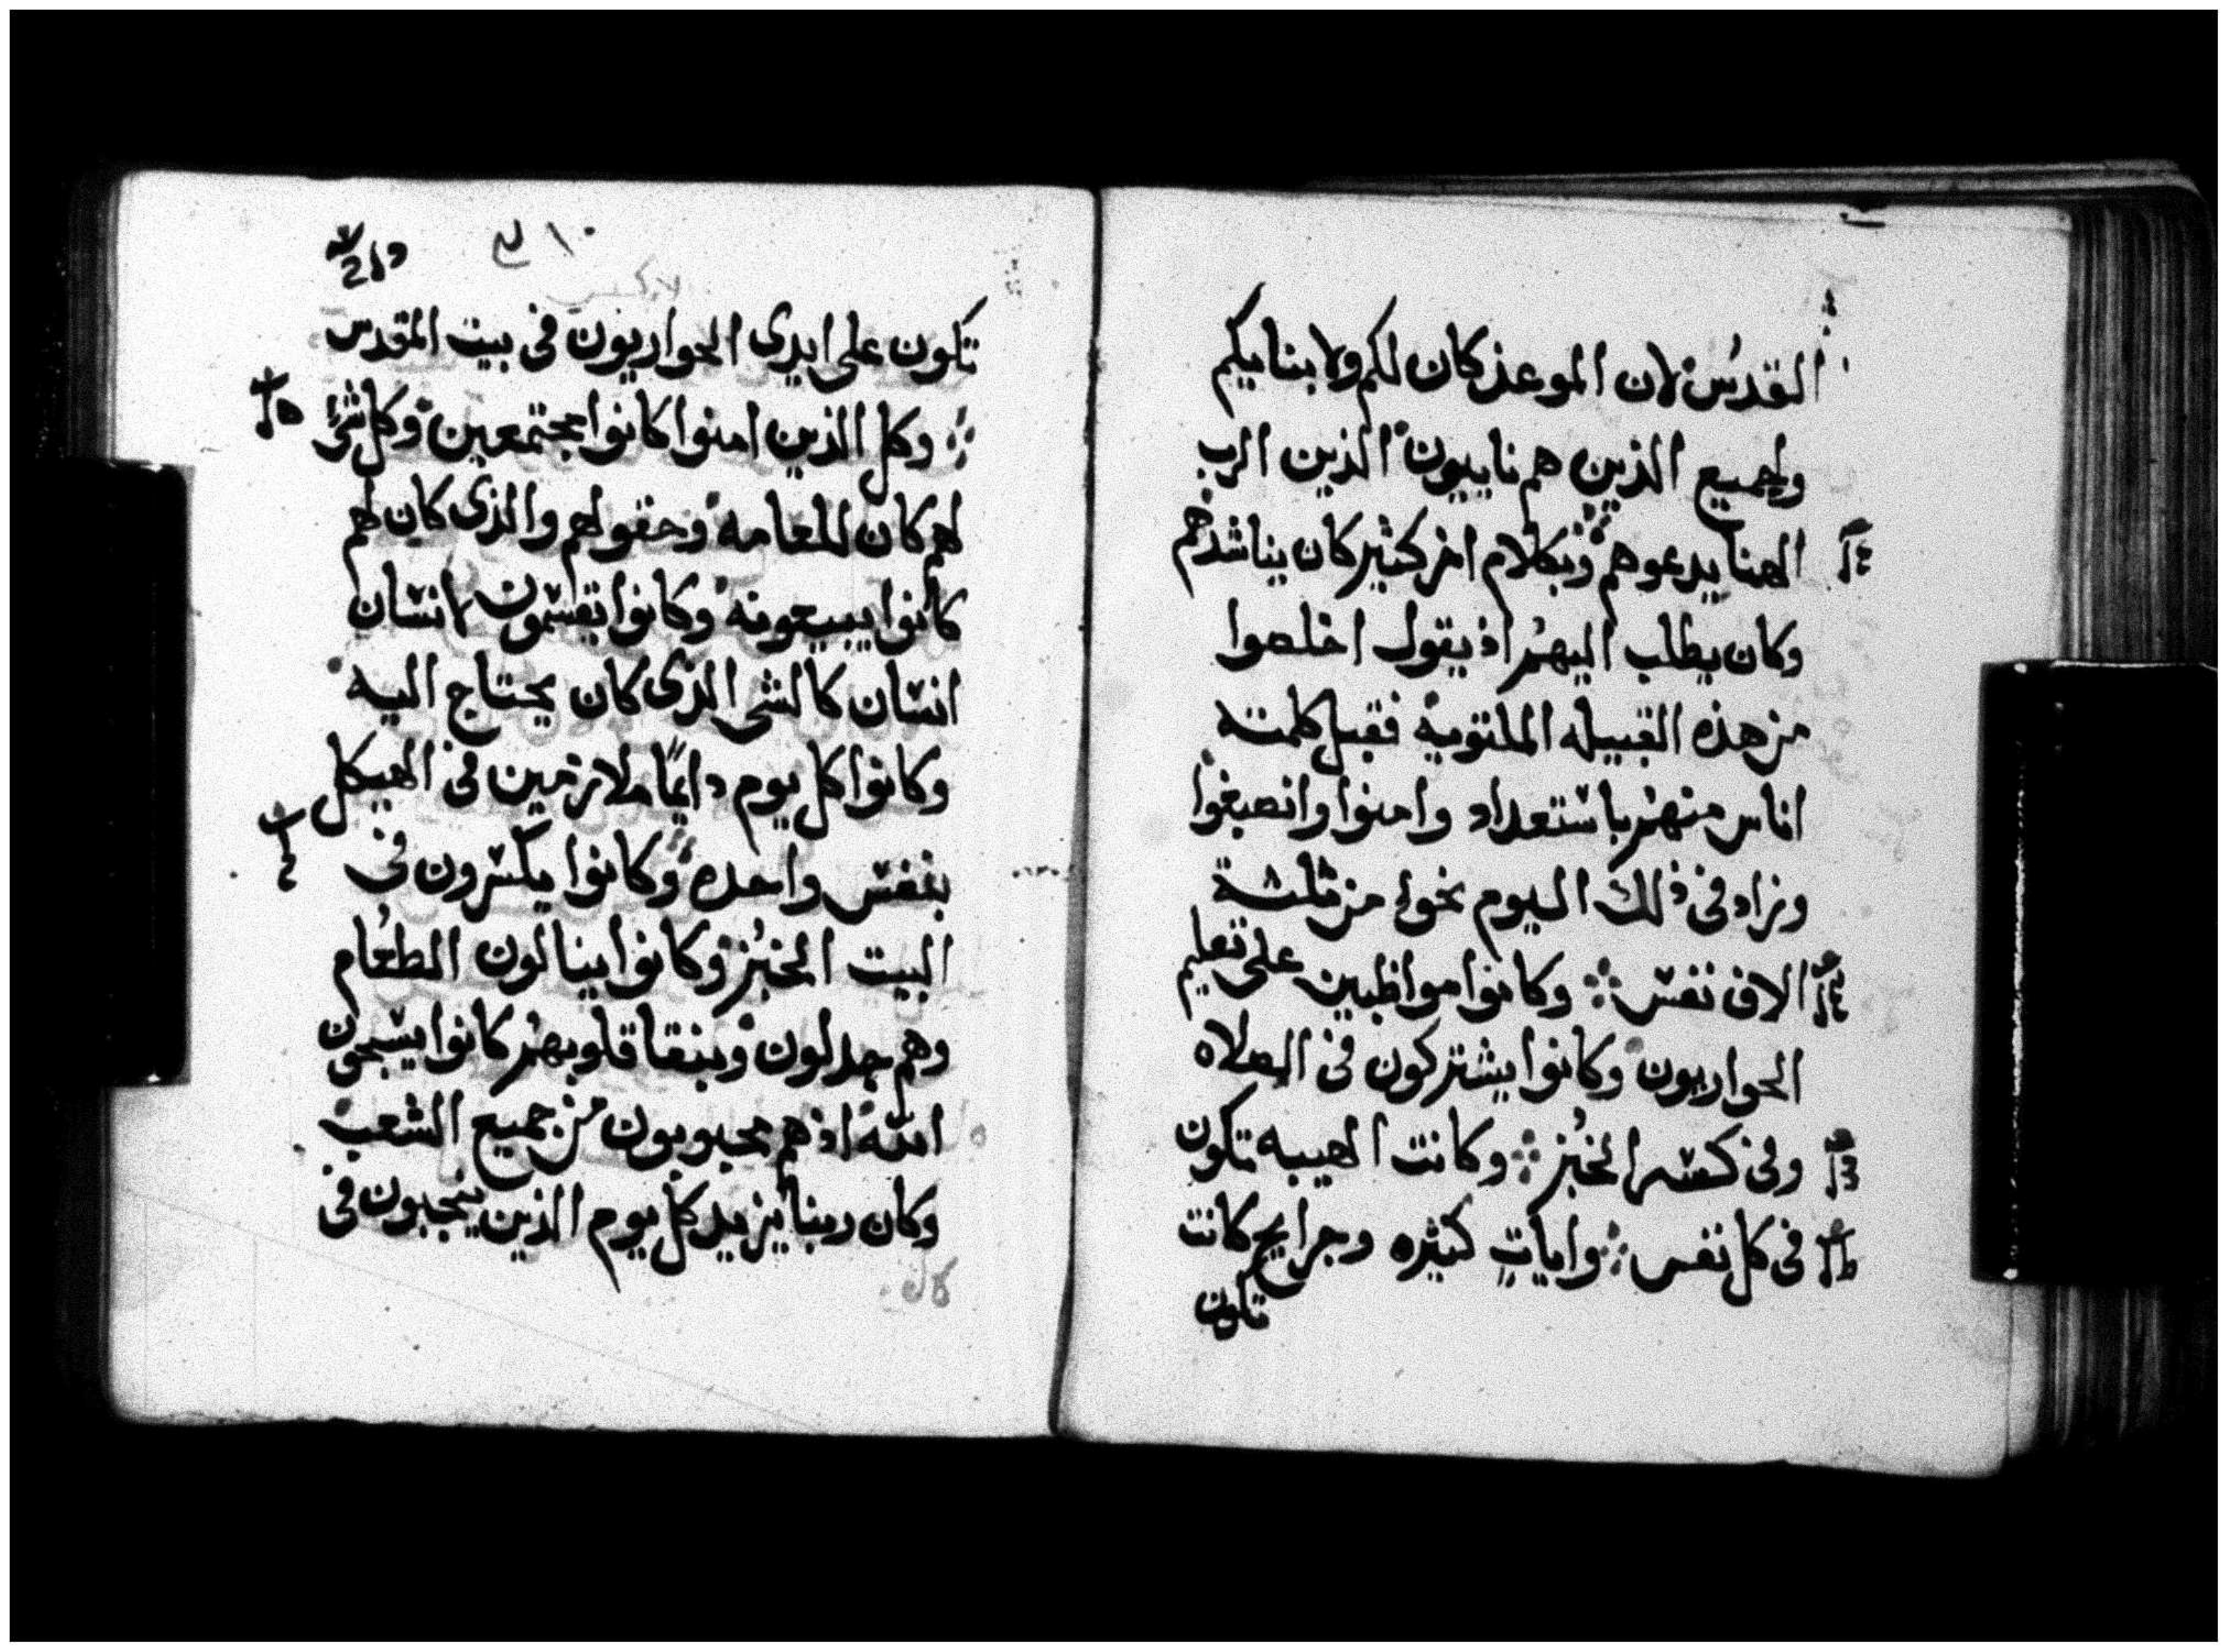 القدس لان الموعد كان لكم ولا بنايكم
ولجميع الذين هم ناييون الذين الرب
الهنا يدعوهم وبكلام اخر كثير كان يناشدهم
وكان يطلب اليهم اذ يقول اخلصوا
من هذه القبيله الملتويه فقبل كلمته
اناس منهم باستعداد وامنوا وانصبغوا
وزاد في ذلك اليوم نحوا من ثلثة
الاف نفس وكانوا مواظبين على تعليم
الحواريون وكانوا يشتركون في الصلاه
وفي كسر الخبز وكانت الهيبه تكون
في كل نفس وايات كثيره وجرايح كانت
تكون
تكون على ايدى الحواريون في بيت المقدس
وكل الذين امنوا كانوا مجتمعين وكل شى
لهم كان للعامه وحقولهم والذى كان لهم
كانوا يبيعونه وكانوا يقسمون لانسان
انسان كالشى الذى كان يحتاج اليه
وكانوا كل يوم دايمًا ملازمين في الهيكل
بنفس واحده وكانوا يكسرون في
البيت الخبز وكانوا ينالون الطعام
وهم جدلون وبنقا قلوبهم كانوا يسبحون
الله اذ هم محبوبون من جميع الشعب
وكان ربنا يزيد كل يوم الذين ينجبون في